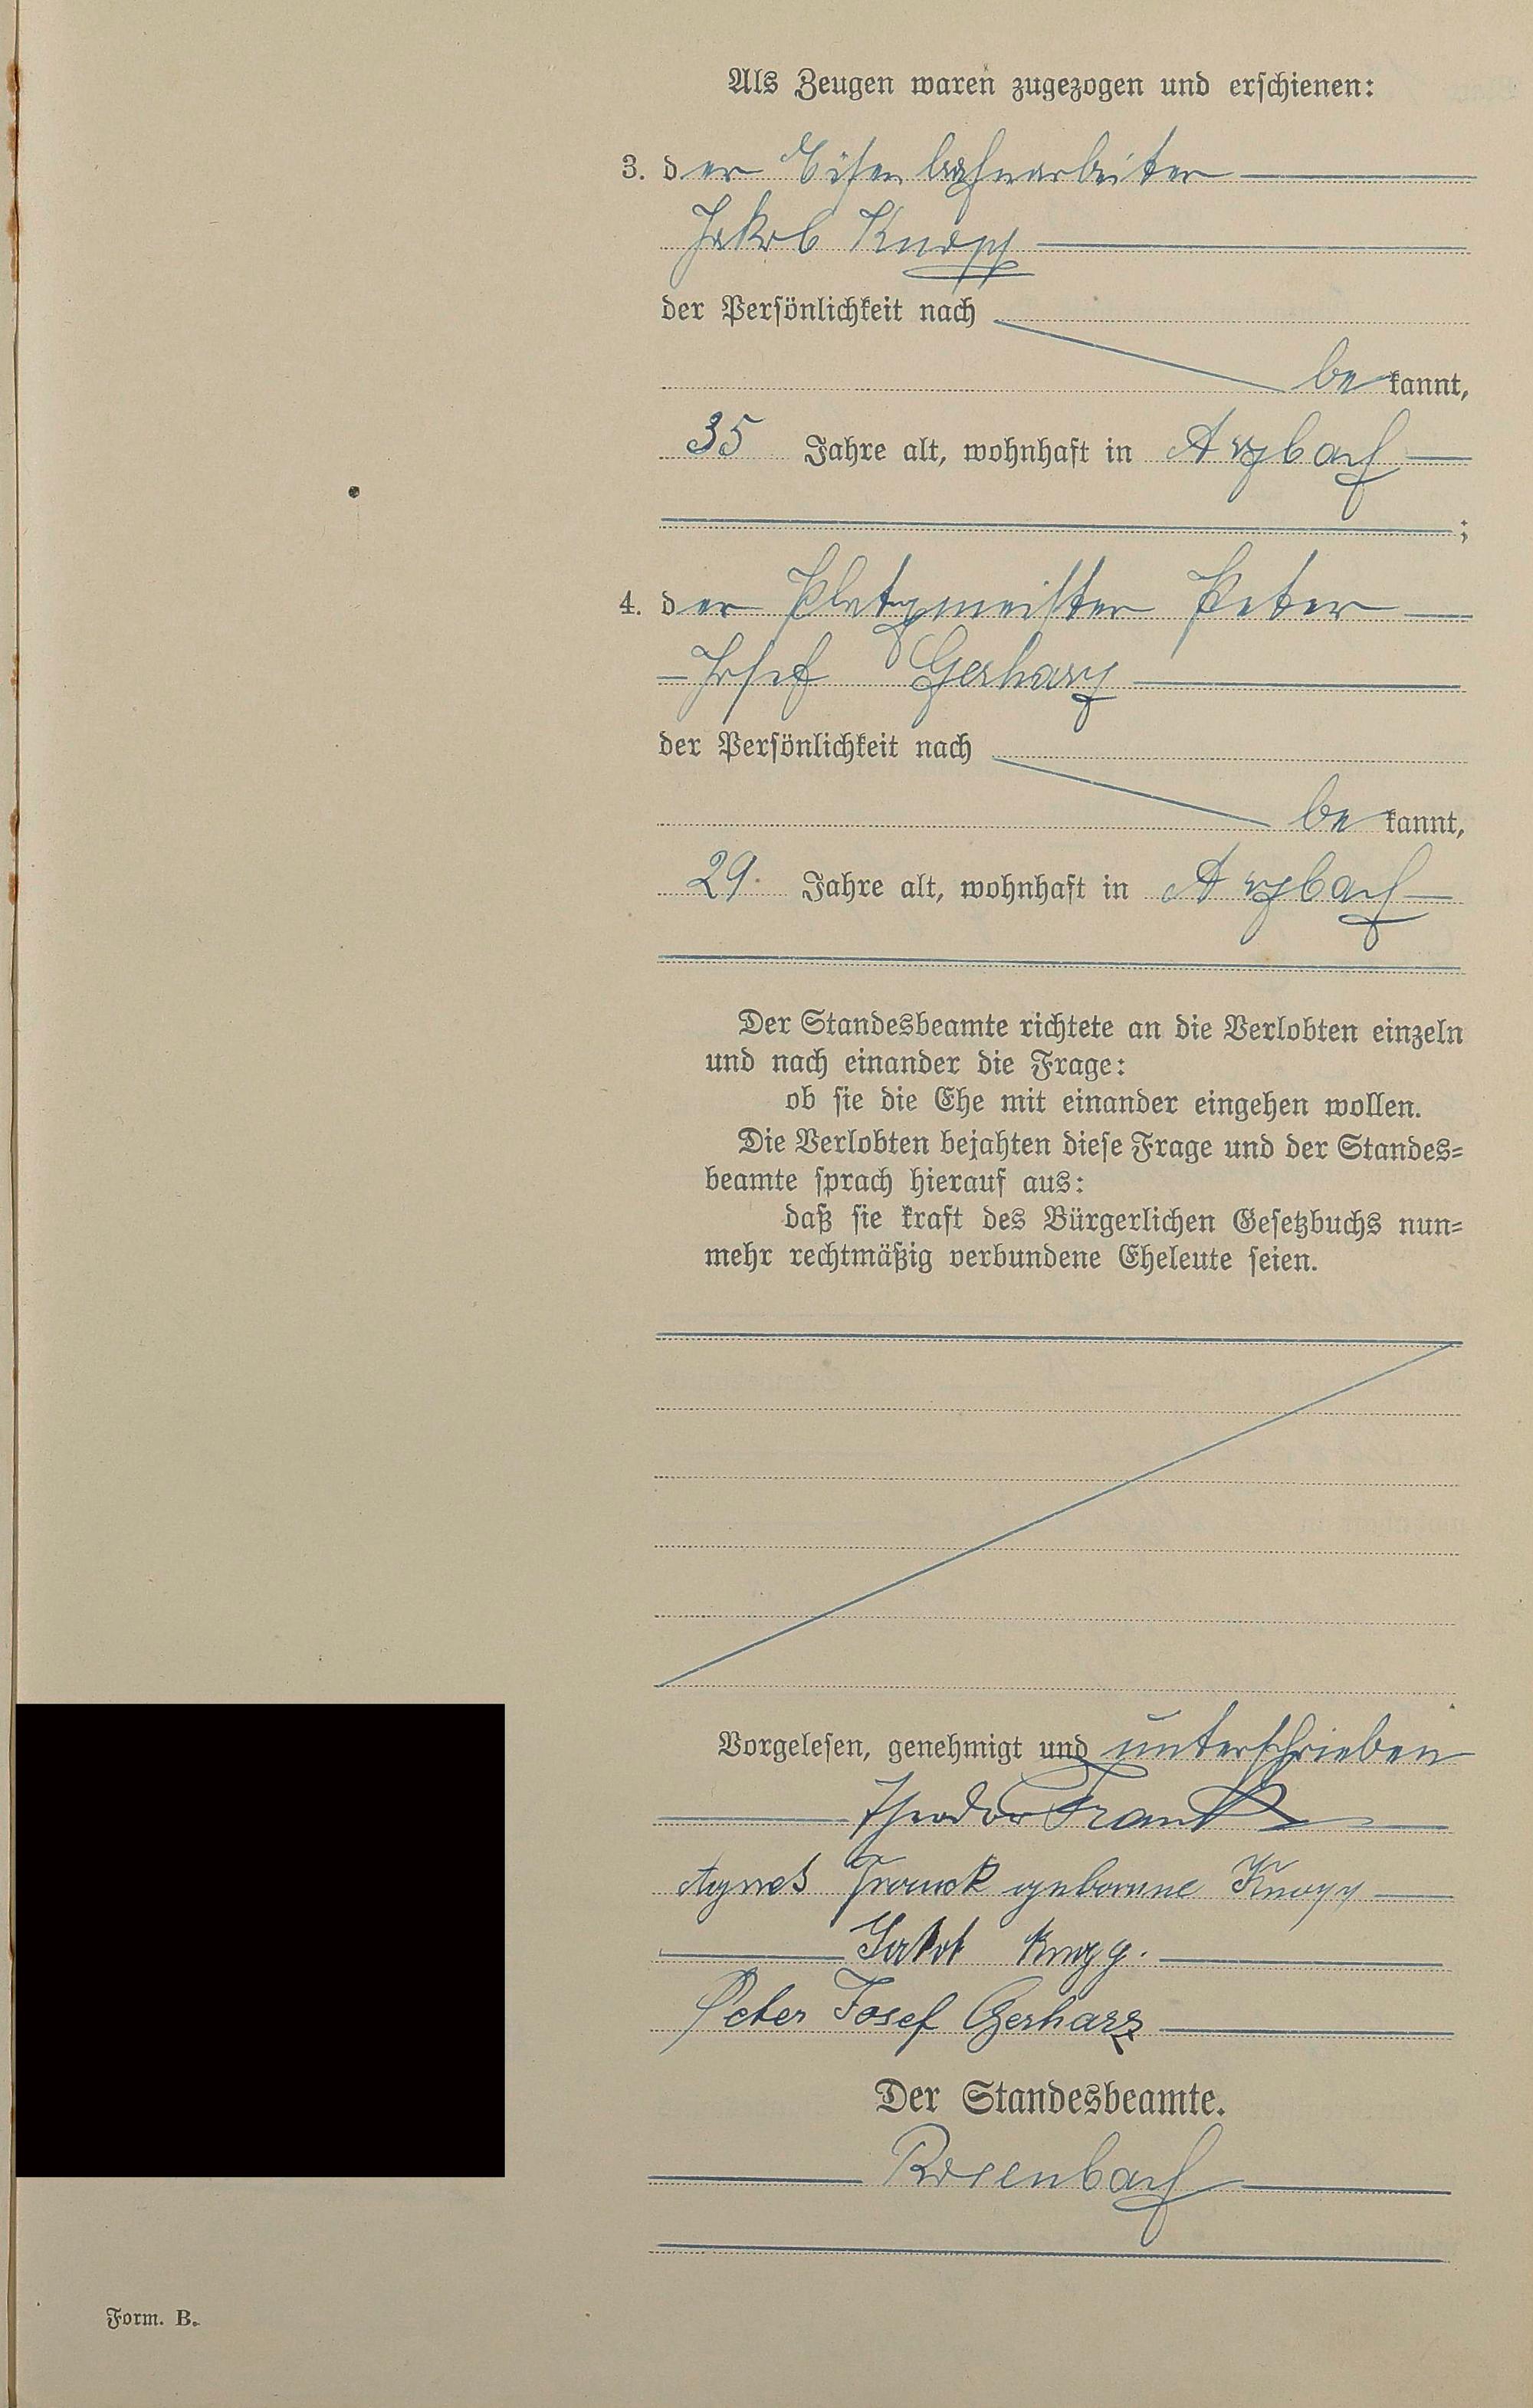 Als Zeugen waren zugezogen und erschienen:
3. der Eisenbahnarbeiter
Jakob Knopp
der Persönlichkeit nach
bekannt,
35 Jahre alt, wohnhaft in Arzbach
;
4. der Platzmeister Peter
Josef Gerharz
der Persönlichkeit nach
bekannt,
29 Jahre alt, wohnhaft in Arzbach
Der Standesbeamte richtete an die Verlobten einzeln
und nach einander die Frage:
ob sie die Ehe mit einander eingehen wollen.
Die Verlobten bejahten diese Frage und der Standes=
beamte sprach hierauf aus:
daß sie kraft des Bürgerlichen Gesetzbuchs nun=
mehr rechtmäßig verbundene Eheleute seien.
Vorgelesen, genehmigt und unterschrieben
Theodor Frank
Agnes Franck geborene Knopp
Jakob Knopp.
Peter Josef Gerharz
Der Standesbeamte.
Rosenbach
Form. B.